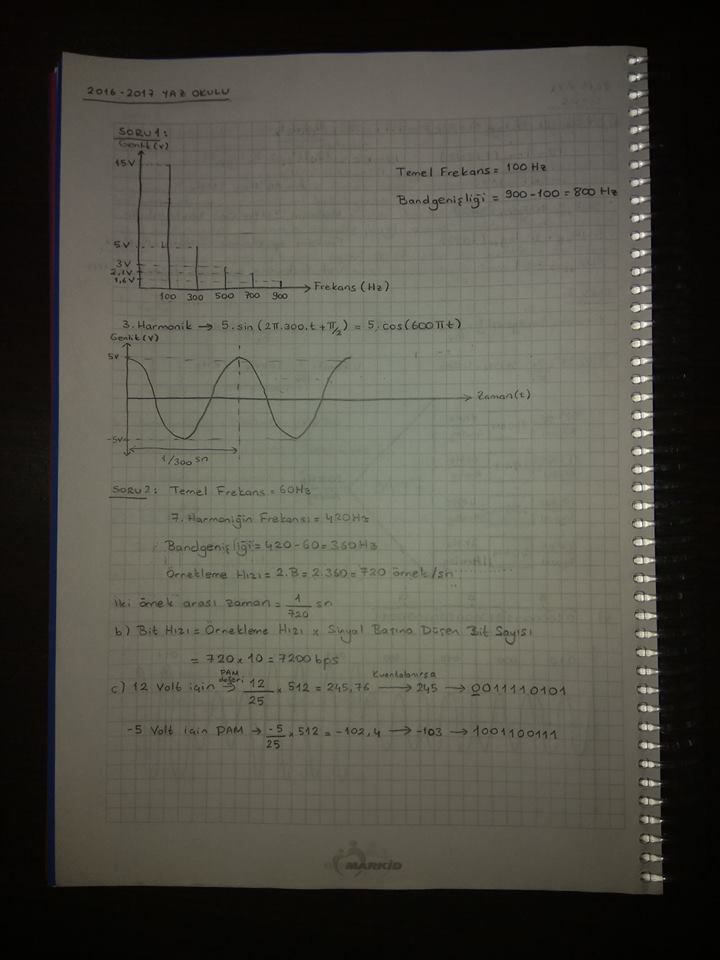 2016-2017 YAZ OKULU
SORU 1:
Genlik (V)
15V
Temel Frekans = 100 Hz
Bandgenişliği = 900-100 = 800 Hz
5V
3V
2,1V
1,6V
100 300 500 700 900
Frekans (Hz)
3. Harmonik → 5.sin(2π.300.t+π/2) = 5.cos(600πt)
Genlik (V)
5V
Zaman(t)
-5V
1/300 sn
SORU 2: Temel Frekans = 60Hz
7. Harmoniğin Frekansı = 420Hz
Bandgenişliği = 420-60 = 360Hz
Örnekleme Hızı = 2.B = 2.360 = 720 örnek/sn
İki örnek arası zaman = 1/720 sn
b) Bit Hızı = Örnekleme Hızı x Sinyal Başına Düşen Bit Sayısı
= 720 x 10 = 7200 bps
c) 12 Volt için PAM değeri → 12/25 x 512 = 245,76 Kuantalanırsa → 245 → 0011110101
-5 Volt için PAM → -5/25 x 512 = -102,4 → -103 → 1001100111
MARKİD